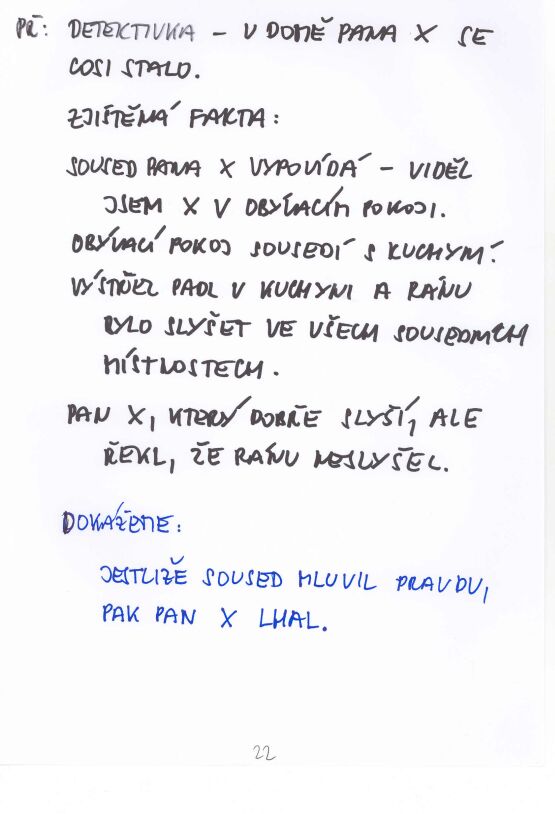 PŘ: DETEKTIVKA – V DOMĚ PANA X SE
COSI STALO.
ZJIŠTĚNÁ FAKTA:
SOUSED PANA X VYPOVÍDÁ – VIDĚL
JSEM X V OBÝVACÍM POKOJI.
OBÝVACÍ POKOJ SOUSEDÍ S KUCHYNÍ.
VÝSTŘEL PADL V KUCHYNI A RÁNU
BYLO SLYŠET VE VŠECH SOUSEDNÍCH
MÍSTNOSTECH.
PAN X, KTERÝ DOBŘE SLYŠÍ, ALE
ŘEKL, ŽE RÁNU NESLYŠEL.
DOKÁŽEME:
JESTLIŽE SOUSED MLUVIL PRAVDU,
PAK PAN X LHAL.
22